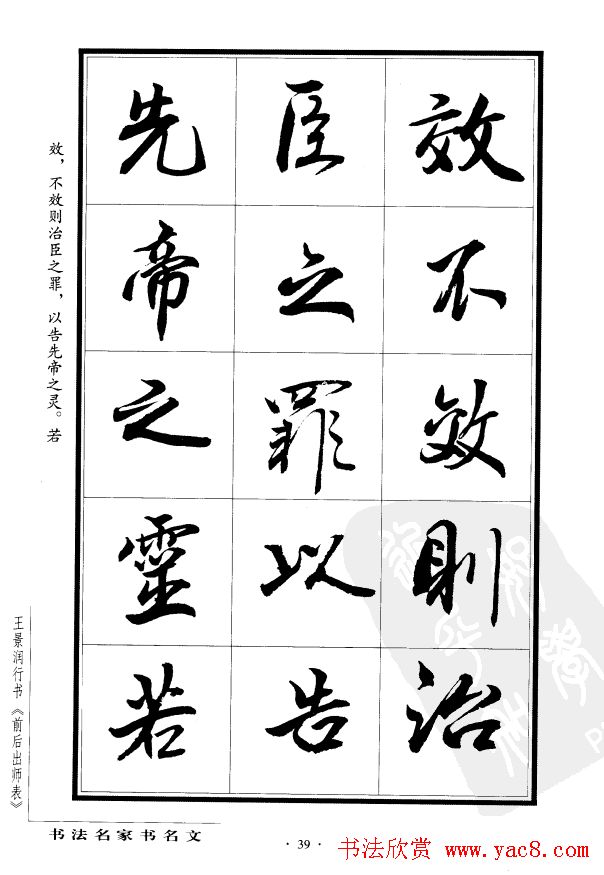 效不效则治
臣之罪以告
先帝之靈若
效，不效则治臣之罪，以告先帝之灵。若
王景润行书《前后出师表》
书法名家书名文
·39·
书法欣赏 www.yac8.com